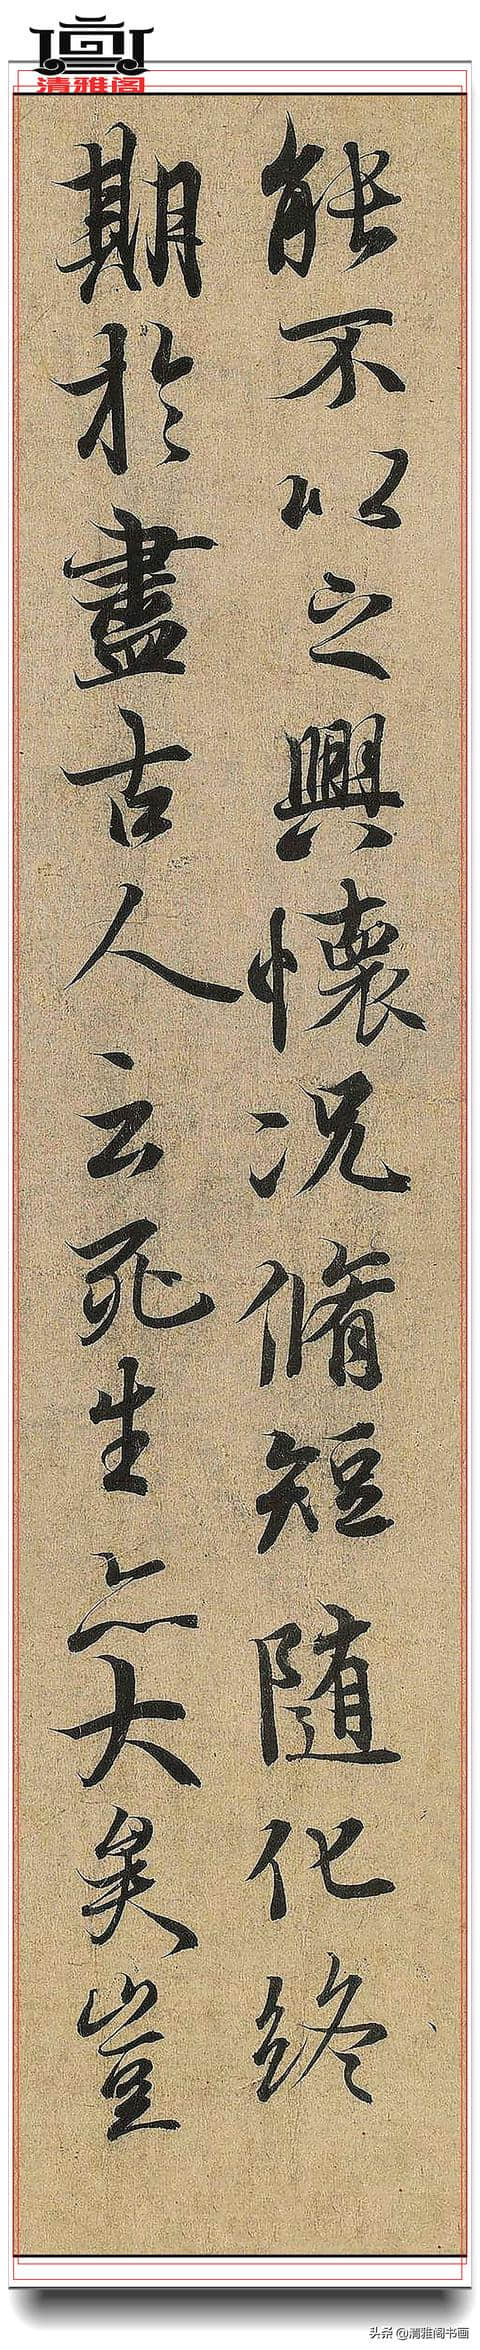 清雅阁
能不以之興懷况脩短隨化终
期於盡古人云死生亦大矣豈
头条@清雅阁书画